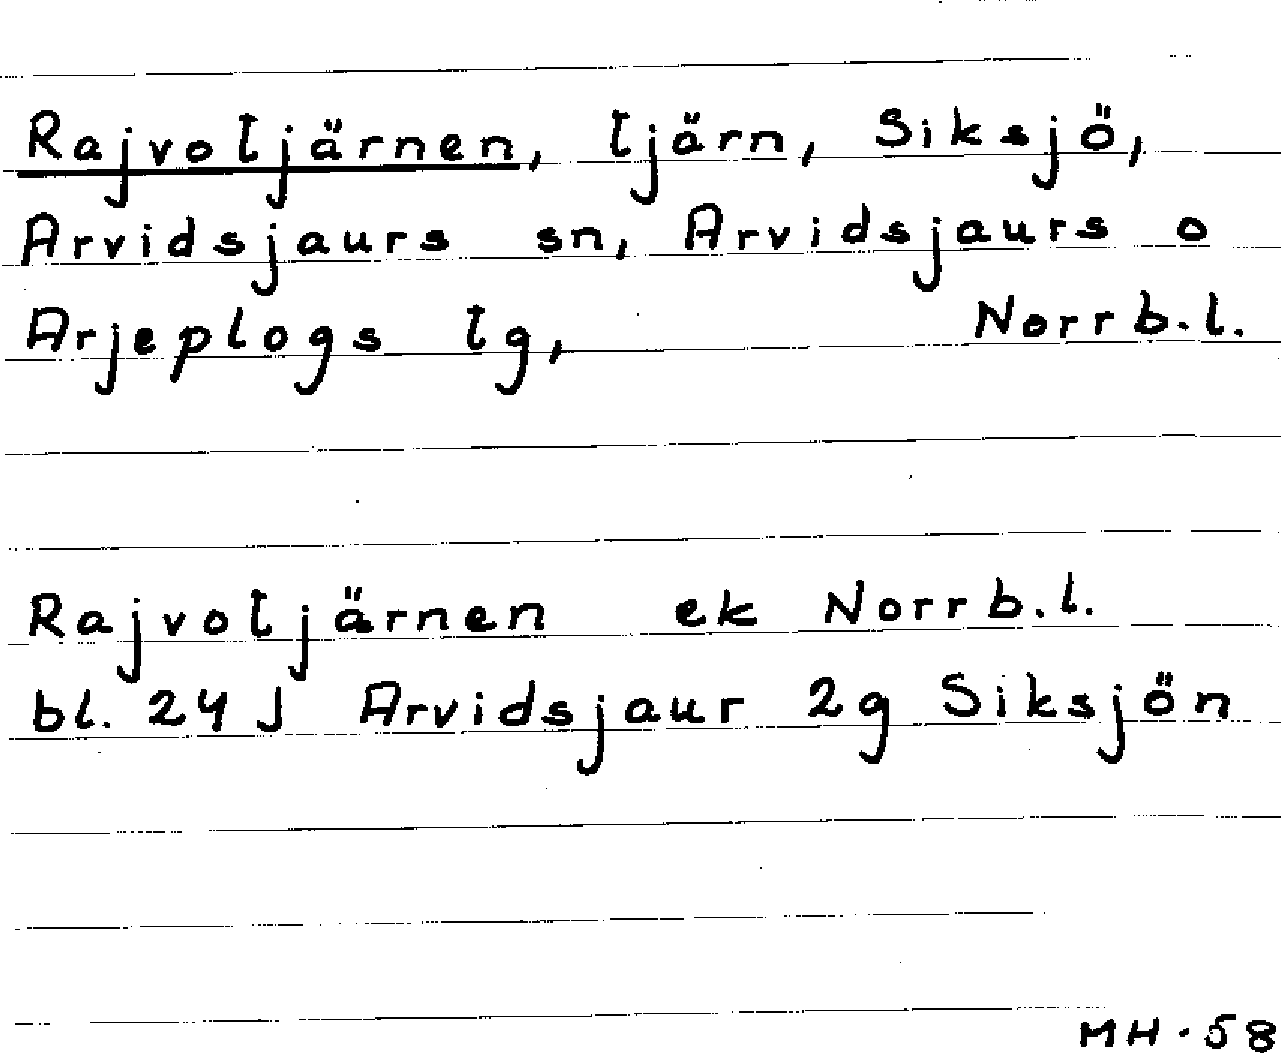 Rajvotjärnen, tjärn, Siksjö,
Arvidsjaurs sn, Arvidsjaurs o
Arjeplogs tg, Norrb.l.
Rajvotjärnen ek Norrb.l.
bl. 24 J Arvidsjaur 2g Siksjön
MH.58